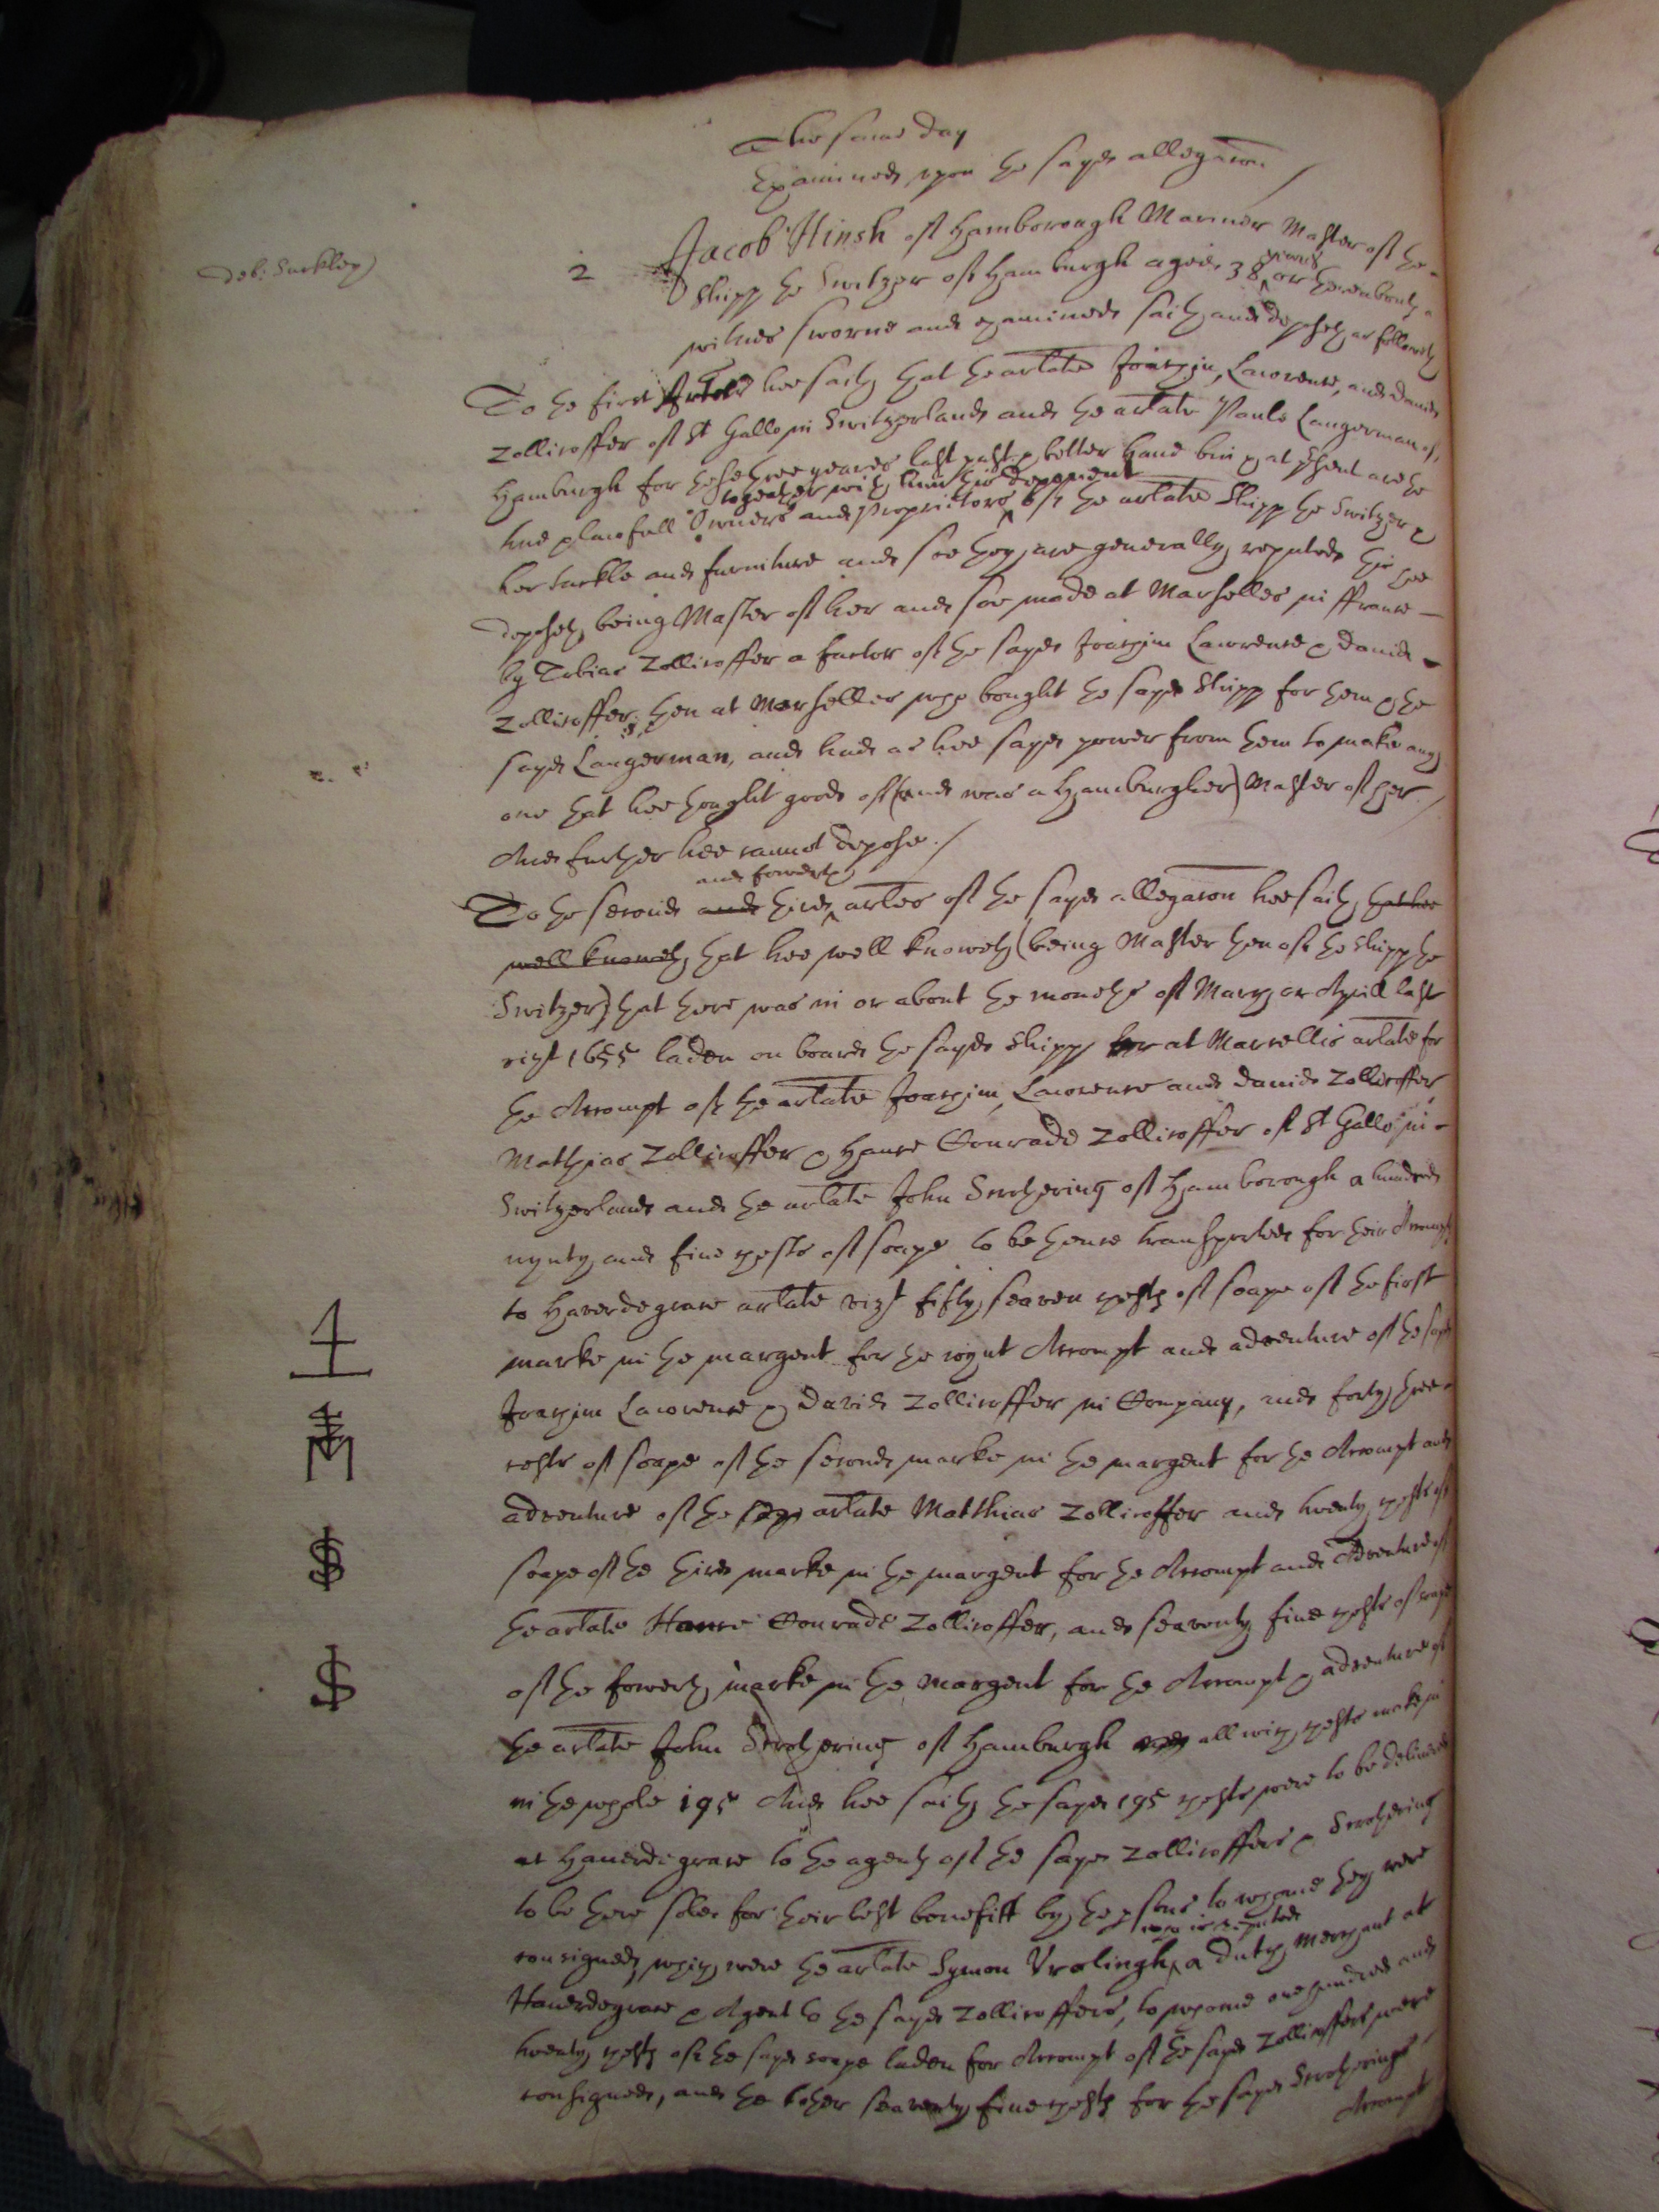 The same day
Examined upon the sayd allegacon
dep: Suckley
2
Jacob Hinsh of Hamborough Mariner Master of the
shipp the Switzer of Hamburgh aged 38 yeares or thereabouts
witnes sworne and examined saith and deposeth as followeth
To the first Article hee saith that the arlate Joachim, Lawrence, and David
Zollicoffer of St Gallo in Switzerland and the arlate Paule Langerman of
Hamburgh for these three yeares last past & better have bin & at present are the
together with him this deponent
true & lawfull Owners and Proprietors of the arlate shipp the Switzer &
her tackle and furniture and soe they are generally reputed this hee
deposeth being Master of her and soe made at Marselles in ffrance
by Tobias Zollicoffer a factor of the sayd Joachim Lawrence & David
Zollicoffer, then at Marselles who bought the sayd shipp for them & the
sayd Langerman, and had as hee sayd power from them to make any
one that hee thought good of (and was a Hamburgher) Master of her
And further hee cannot depose./
and fowerth
To the second and third arles of the sayd allegacon hee saith, that hee
well knoweth, that hee well knoweth (being Master then of the shipp the
Switzer) that there was in or about the moneths of March or Aprill last
vizt 1655 laden on board the sayd shipp her at Marcellis arlate for
the Accompt of the arlate Joachim, Lawrence and David Zollicoffer
Mathias Zollicoffer & Hance Conrade Zollicoffer of St Gallo in
Switzerland and the arlate John Strothering of Hamborough a hundred
nynty and five chests of soape to be thence transported for their Accompt
to Haverdegrace arlate vizt fifty seaven chests of soape of the first
marke in the margent for the joynt Accompt and adventure of the sayd
Joachim Lawrence & David Zollicoffer in Company, and forty three
chests of soape of the second marke in the margent for the Accompt and
adventure of the sayd arlate Matthias Zollicoffer and twenty chests of
soape of the third marke in the margent for the Accompt and Adventure of
the arlate Hance Conrade Zollicoffer, and seaventy five chests of soape
of the fowerth marke in the margent for the Accompt & adventure of
the arlate John Strothering of Hamburgh and all wich chests make in
in the whole 195 And hee saith the sayd 195 chests were to be delivered
at Haverdegrace to the agents of the sayd Zollicoffers & Strothering
to be there sold for their best benefitt by the psons to whome they were
who is reputed
consigned, which were the arlate Symon Vrolingh, a dutch Merchant at
Haverdegrace & Agent to the sayd Zollicoffers, to whome one hundred and
twenty chests of the sayd soape laden for Accompt of the sayd Zollicoffers were
consigned, and the other seaventy five chests for the sayd Strotherings
Accompt